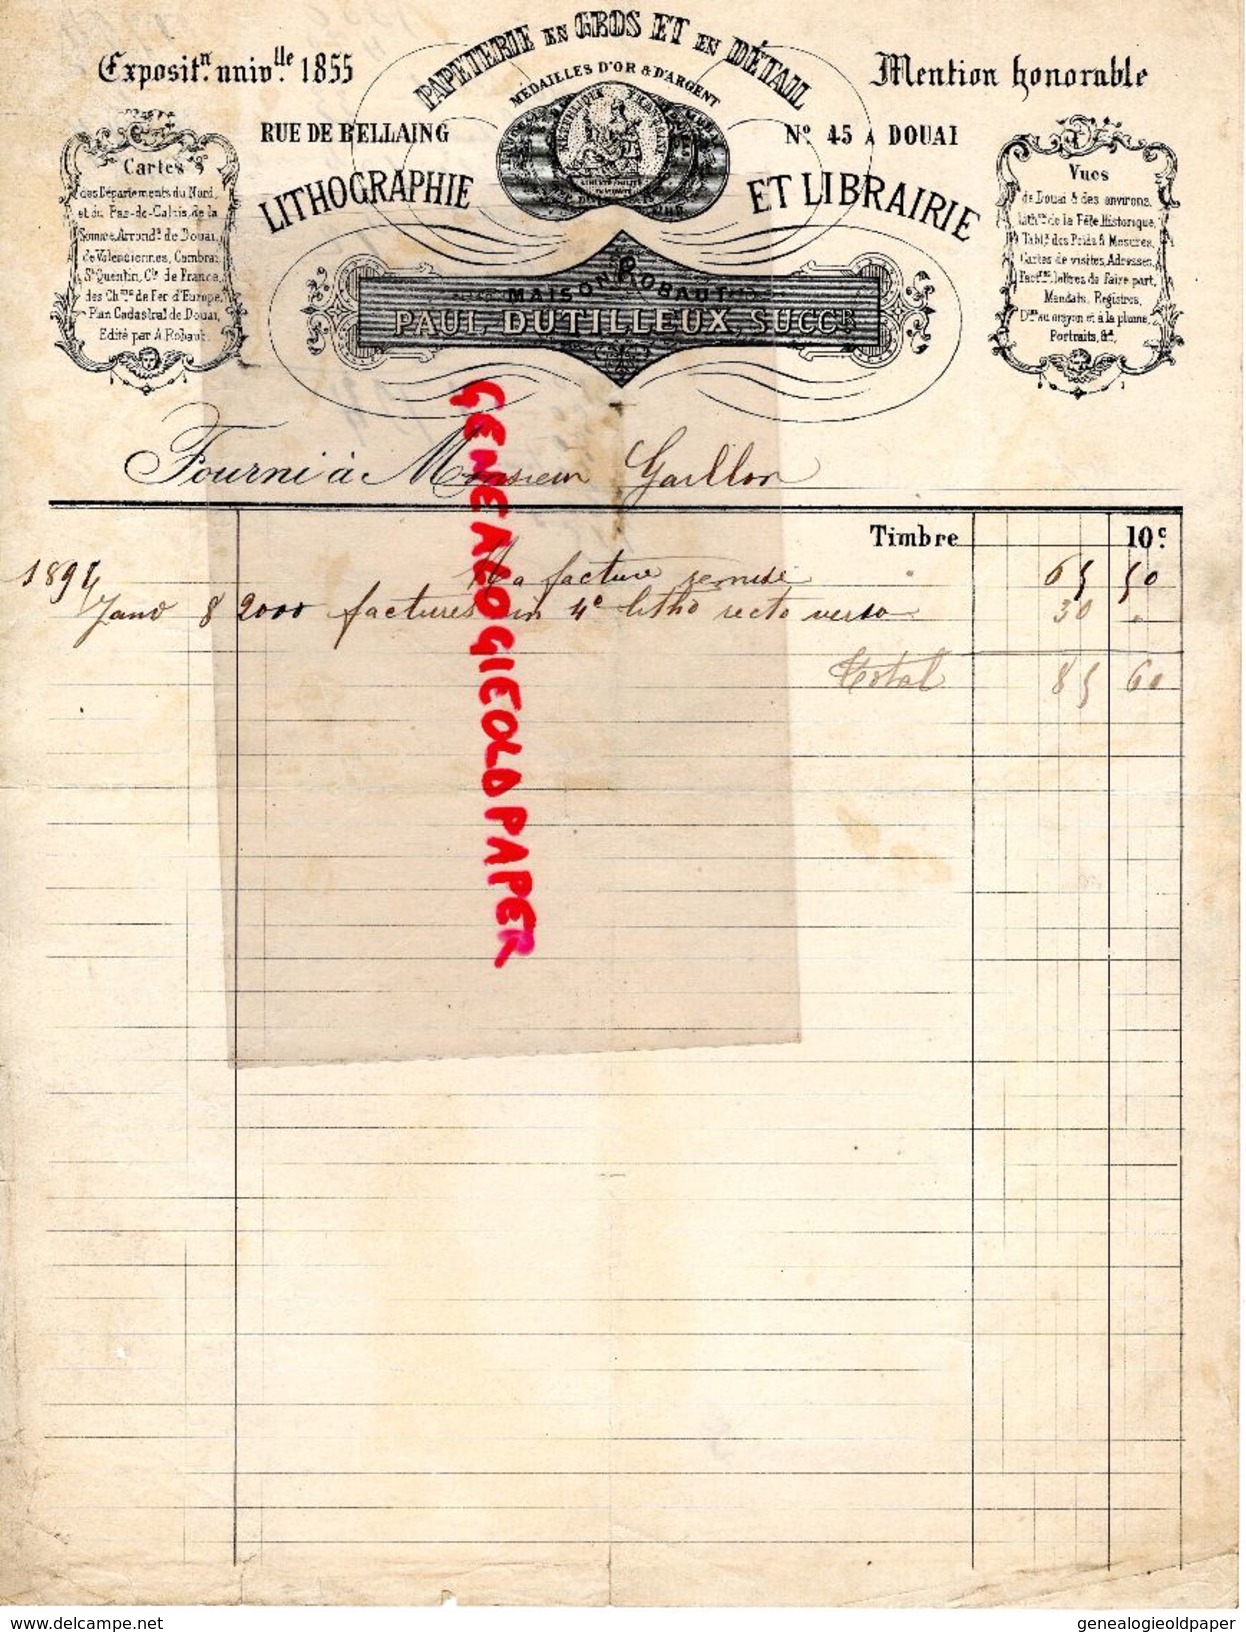 PAPETERIE EN GROS ET EN DÉTAIL
Exposit.n univ.lle 1855
MÉDAILLES D'OR & D'ARGENT
Mention honorable
RUE DE BELLAING
No. 45 A DOUAI
LITHOGRAPHIE
ET LIBRAIRIE
Cartes
des Départements du Nord,
et du Pas-de-Calais, de la
Somme, Arrond.t de Douai,
de Valenciennes, Cambrai,
St Quentin, Cie de France,
des Ch.ins de Fer d'Europe,
Plan Cadastral de Douai,
Edité par A. Robaut.
Vues
de Douai & des environs,
Lith.ie de la Fête Historique,
Tabl.x des Poids & Mesures,
Cartes de visites, Adresses,
Fact.res lettres de faire part,
Mandats, Registres,
D.ins au crayon et à la plume,
Portraits, &a.
MAISON ROBAUT
PAUL DUTILLEUX, SUCCR
Fourni à Monsieur Gaillon
Timbre 10c
Ma facture remise 65 50
Janv 8 2000 factures in 4o litho recto verso 30 .
Total 85 60
GENEALOGIEOLDPAPER
www.delcampe.net
genealogieoldpaper